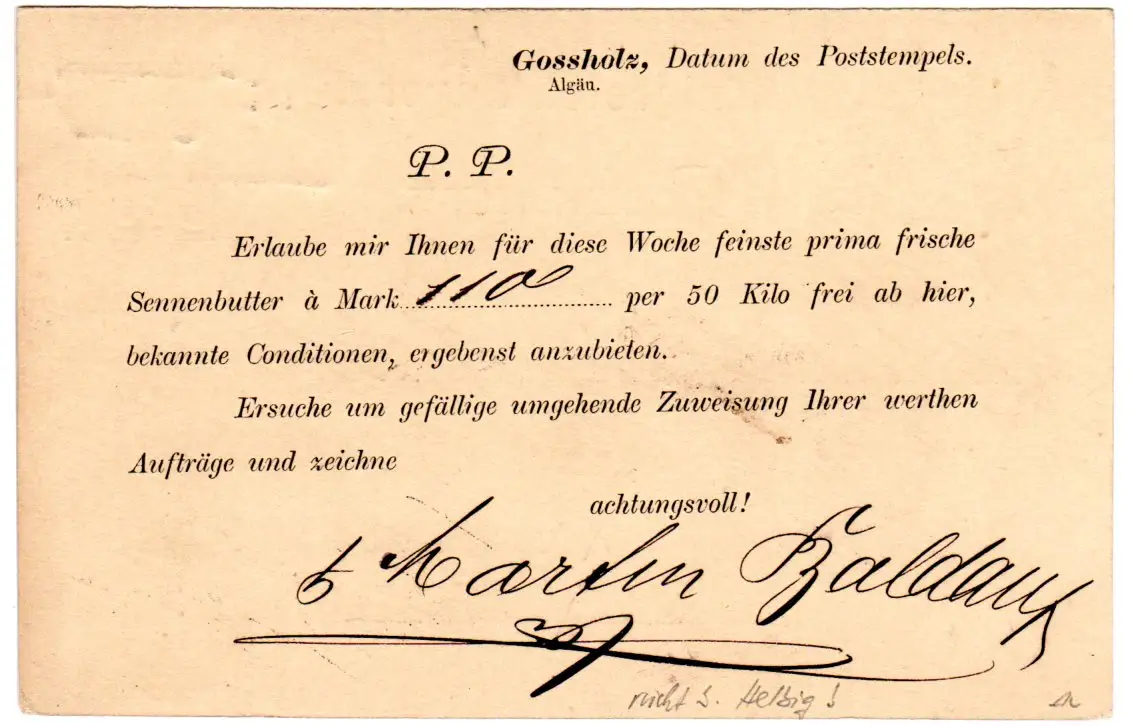 Gossholz, Datum des Poststempels.
Algäu.
P. P.
Erlaube mir Ihnen für diese Woche feinste prima frische
Sennenbutter à Mark 110 per 50 Kilo frei ab hier,
bekannte Conditionen, ergebenst anzubieten.
Ersuche um gefällige umgehende Zuweisung Ihrer werthen
Aufträge und zeichne
achtungsvoll!
Martin Baldauf
nicht S. Helbig!